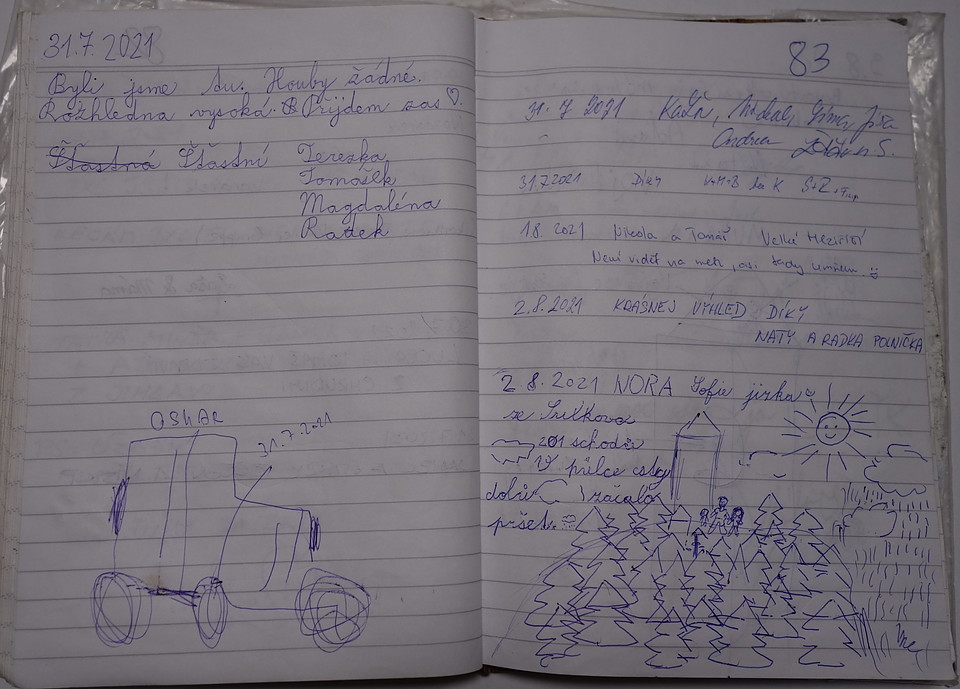 31.7. 2021
Byli jsme tu. Houby žádné.
Rozhledna vysoká. Přijdem zas
Šťastná Šťastní Terezka
Tomášek
Magdaléna
Radek
OSKAR
31.7.2021
83
31. 7 2021 Jíra
Andrea
31.7.2021 Díky
1.8. 2021 Nikola a Tomáš Velké Meziříčí
Není vidět na metr, asi tady umřem
2.8.2021 KRÁSNEJ VÝHLED DÍKY
NATY A RADKA POLNIČKA
2. 8. 2021 NORA Sofie jirka
ze Sulkovce
201 schodů
V půlce cesty
dolů začalo
pršet.